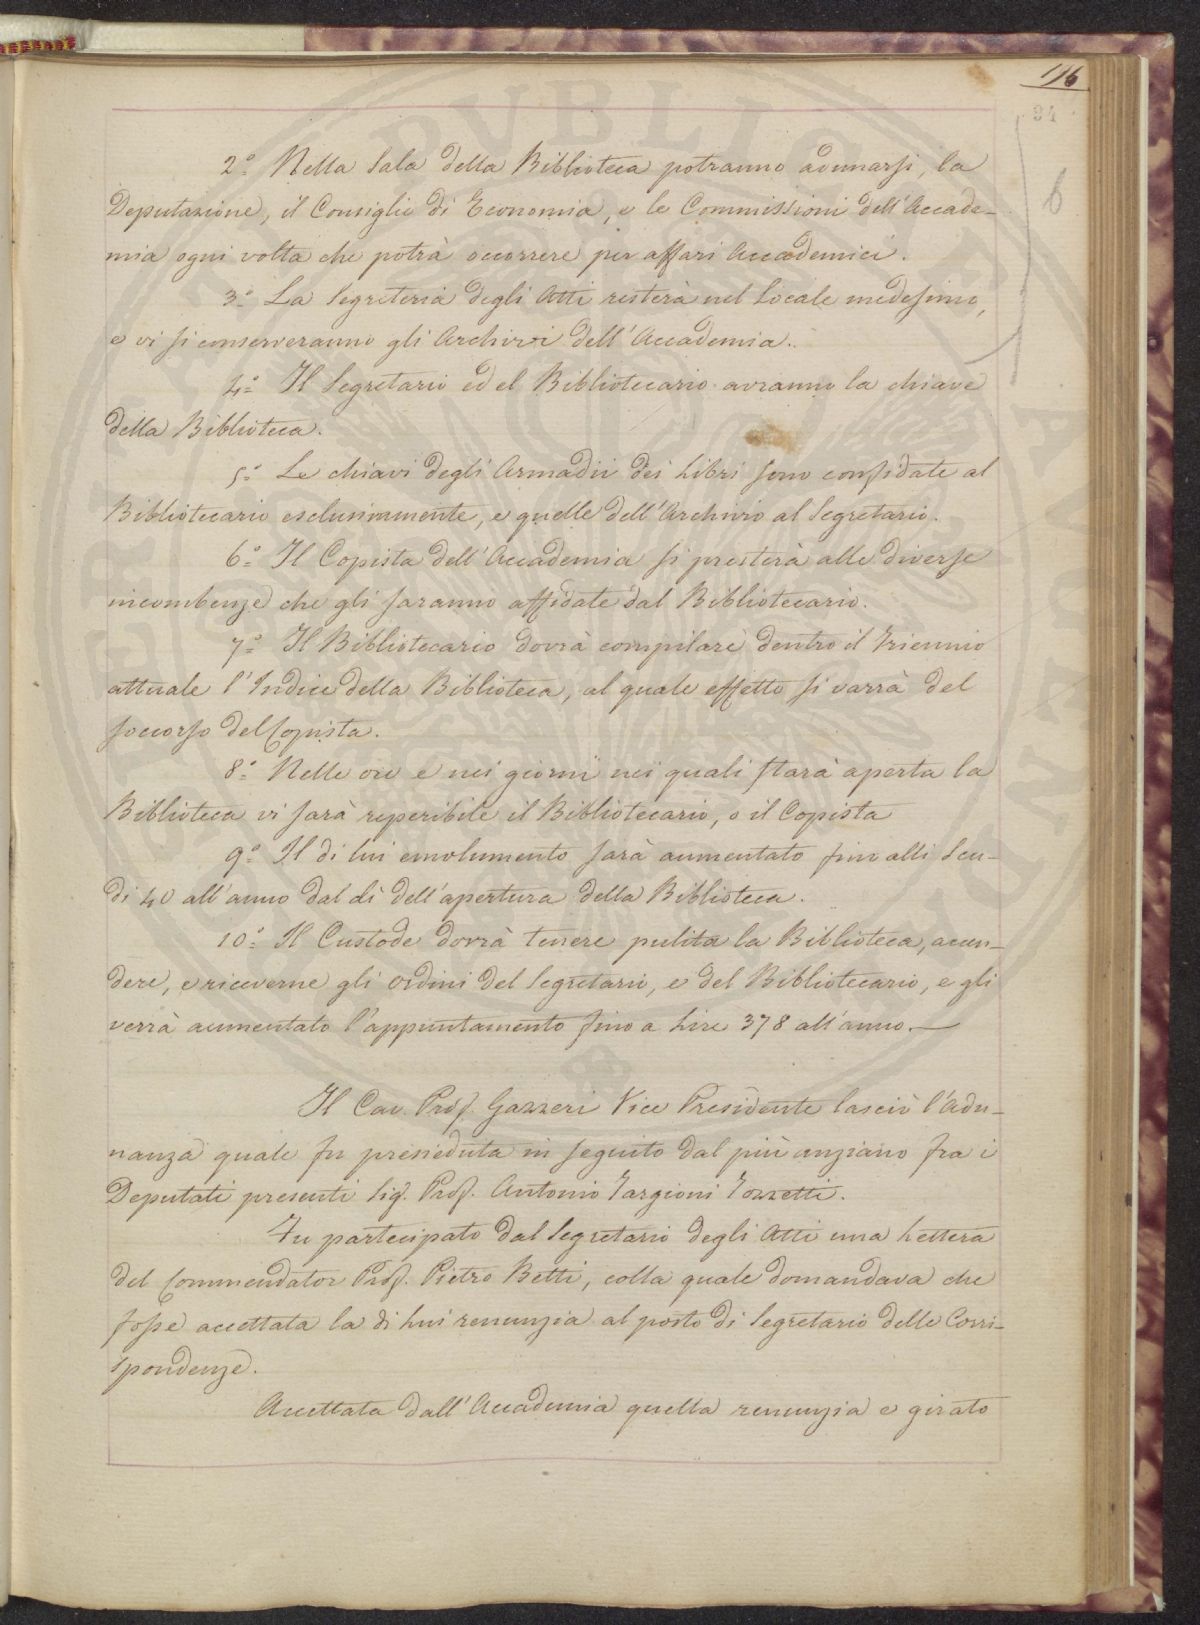 116
34
6
2.° Nella Sala della Biblioteca potranno adunarsi, la
Deputazione, il Consiglio di Economia, e le Commissioni dell'Accade-
mia ogni volta che potrà occorrere per affari Accademici.
3.° La Segreteria degli Atti resterà nel Locale medesimo,
e vi si conserveranno gli Archivi dell'Accademia.
4.° Il Segretario ed el Bibliotecario avranno la chiave
della Biblioteca.
5.° Le chiavi degli Armadii dei Libri sono confidate al
Bibliotecario esclusivamente, e quelle dell'Archivio al Segretario.
6.° Il Copista dell'Accademia si presterà alle diverse
incombenze che gli saranno affidate dal Bibliotecario.
7.° Il Bibliotecario dovrà compilare dentro il Triennio
attuale l'Indice della Biblioteca, al quale effetto si varrà del
soccorso del Copista.
8.° Nelle ore e nei giorni nei quali starà aperta la
Biblioteca vi sarà reperibile il Bibliotecario, o il Copista
9.° Il di lui emolumento sarà aumentato fino alli Scu-
di 40 all'anno dal dì dell'apertura della Biblioteca.
10.° Il Custode dovrà tenere pulita la Biblioteca, accen-
dere, e riceverne gli ordini del Segretario, e del Bibliotecario, e gli
verrà aumentato l'appuntamento fino a Lire 378 all'anno.—
Il Cav. Prof. Gazzeri Vice Presidente lasciò l'Adu-
nanza quale fu presieduta in seguito dal più anziano fra i
Deputati presenti Sig. Prof. Antonio Targioni Tozzetti.
Fu partecipato dal Segretario degli Atti una Lettera
del Commendator Prof. Pietro Betti, colla quale domandava che
fosse accettata la di Lui renunzia al posto di Segretario delle Corri-
spondenze.
Accettata dall'Accademia quella renunzia e girato